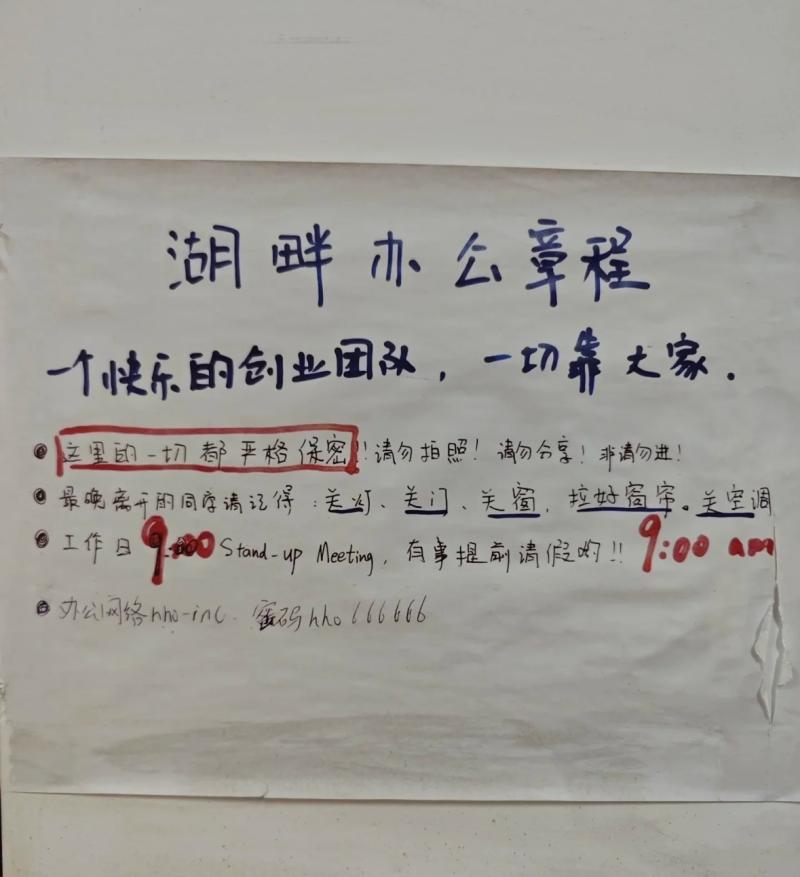 湖畔办公章程
一个快乐的创业团队，一切靠大家.
这里的一切都严格保密!!请勿拍照！请勿分享！非请勿进！
最晚离开的同学请记得：关灯、关门、关窗，拉好窗帘。关空调
工作日9:00 Stand-up Meeting，有事提前请假哟!! 9:00 am
办公网络hho-inc. 密码hho666666